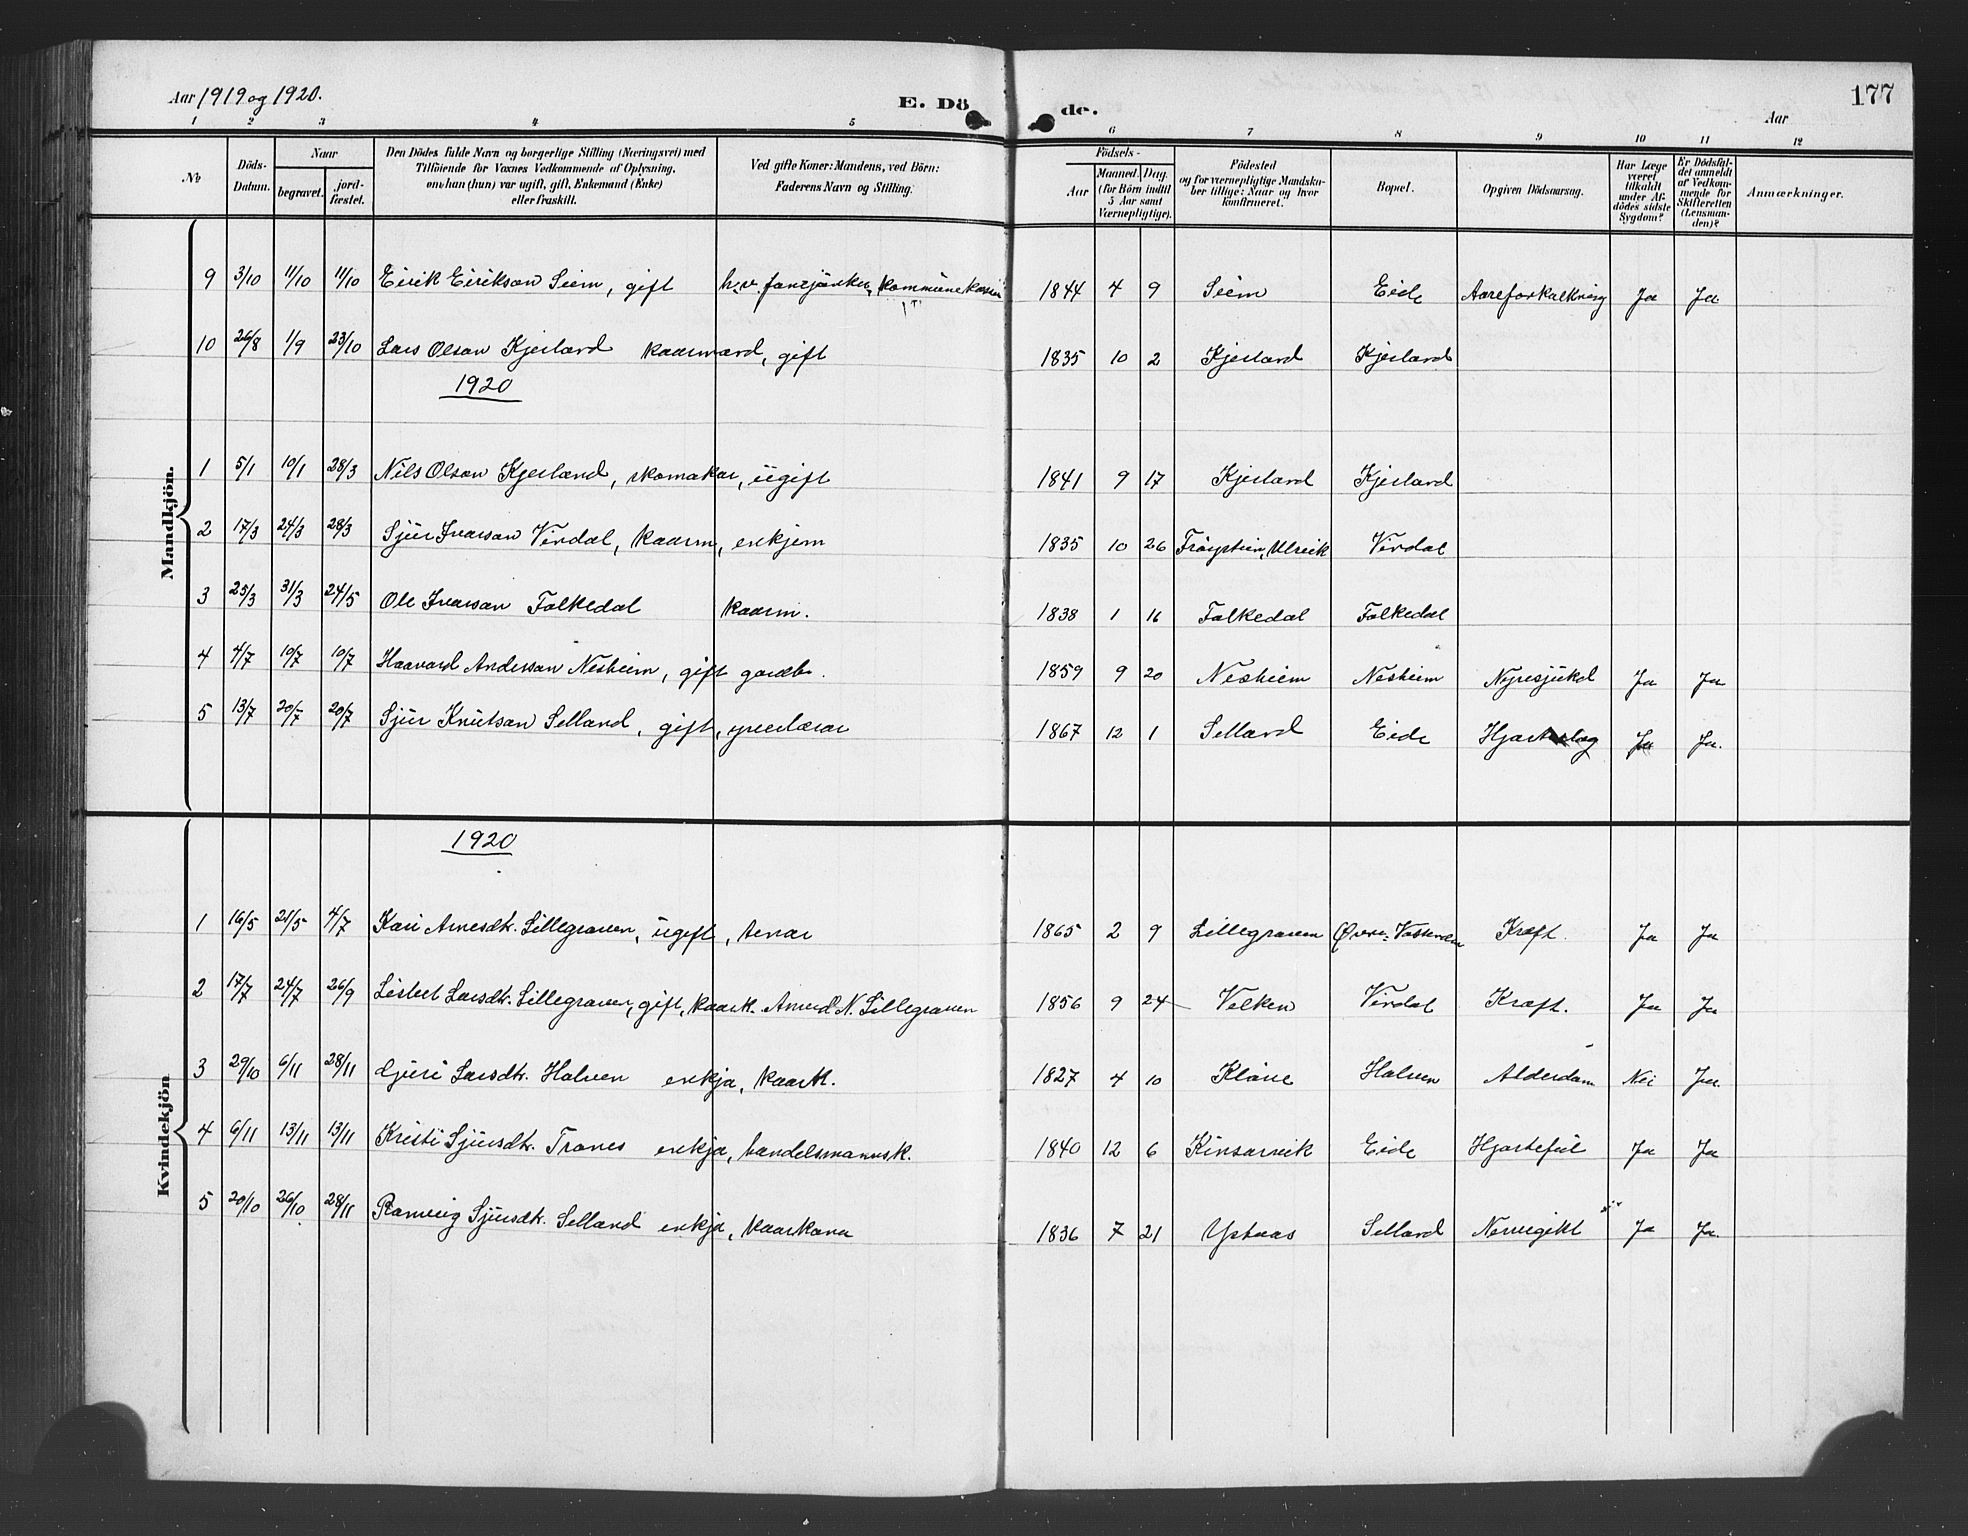 Aar 1919 og 1920.
E. Döde.
Aar
177
1 2 3 4 5 6 7 8 9 10 11 12
No
Döds-Datum.
Naar
begravet.
jord-fæstet.
Den Dödes fulde Navn og borgerlige Stilling (Næringsvei) med
Tilföiende for Voxnes Vedkommende af Oplysning,
om han (hun) var ugift, gift, Enkemand (Enke)
eller fraskilt.
Ved gifte Koner: Mandens, ved Börn:
Faderens Navn og Stilling.
Födsels-
Aar
Maaned. Dag.
(for Börn indtil
5 Aar samt
Værnepligtige).
Födested
og for værnepligtige Mandska-
ber tillige: Naar og hvor
konfirmeret.
Bopæl.
Opgiven Dödsaarsag.
Har Læge
været
tilkaldt
under Af-
dödes sidste
Sygdom?
Er Dödsfal-
det anmeldt
af Vedkom-
mende for
Skifteretten
(Lensman-
den)?
Anmærkninger.
Mandkjön.
9 3/10 11/10 11/10 Eirik Eirikson Seim, gift h.v. kommunekasse 1844 4 9 Seim Eide Aareforkalkning Ja Ja
10 26/8 1/9 23/10 Lars Olson Kjerland kaarmand, gift 1835 10 2 Kjerland Kjerland
1920
1 5/1 10/1 28/3 Nils Olson Kjerland, skomakar, ugift 1841 9 17 Kjerland Kjerland
2 17/3 24/3 28/3 Sjur Ivarson Virdal, kaarm, enkjem 1835 10 26 Tröystein, Ulvik Virdal
3 25/3 31/3 24/5 Ole Ivarson Folkedal kaarm. 1838 1 16 Folkedal Folkedal
4 4/7 10/7 10/7 Haavard Anderson Nesheim, gift gardbr. 1859 9 20 Nesheim Nesheim Nyresjukd Ja Ja
5 13/7 20/7 20/7 Sjur Knutson Selland, gift, 1867 12 1 Selland Eide Hjarteslag Ja Ja.
Kvindekjön
1920
1 16/5 21/5 4/7 Kari Arnesdtr. Lillegraven, ugift, tenar 1865 2 9 Lillegraven Øvre Kræft. Ja Ja
2 17/7 24/7 26/9 Lisbet Larsdtr. Lillegraven, gift, kaark. Amund N. Lillegraven 1856 9 24 Velken Virdal Kræft. Ja Ja
3 29/10 6/11 28/11 Guri Larsdtr. Halven enkja, kaark. 1827 4 10 Kløve Halven Alderdom Nei Ja.
4 6/11 13/11 13/11 Kristi Sjursdtr. Trones enkja, handelsmannsk. 1840 12 6 Kinsarvik Eide Hjartefeil Ja Ja
5 20/10 26/10 28/11 Ranveig Sjursdtr. Selland enkja, kaarkona 1836 7 21 Ystaas Selland Nervegikt Ja Ja.